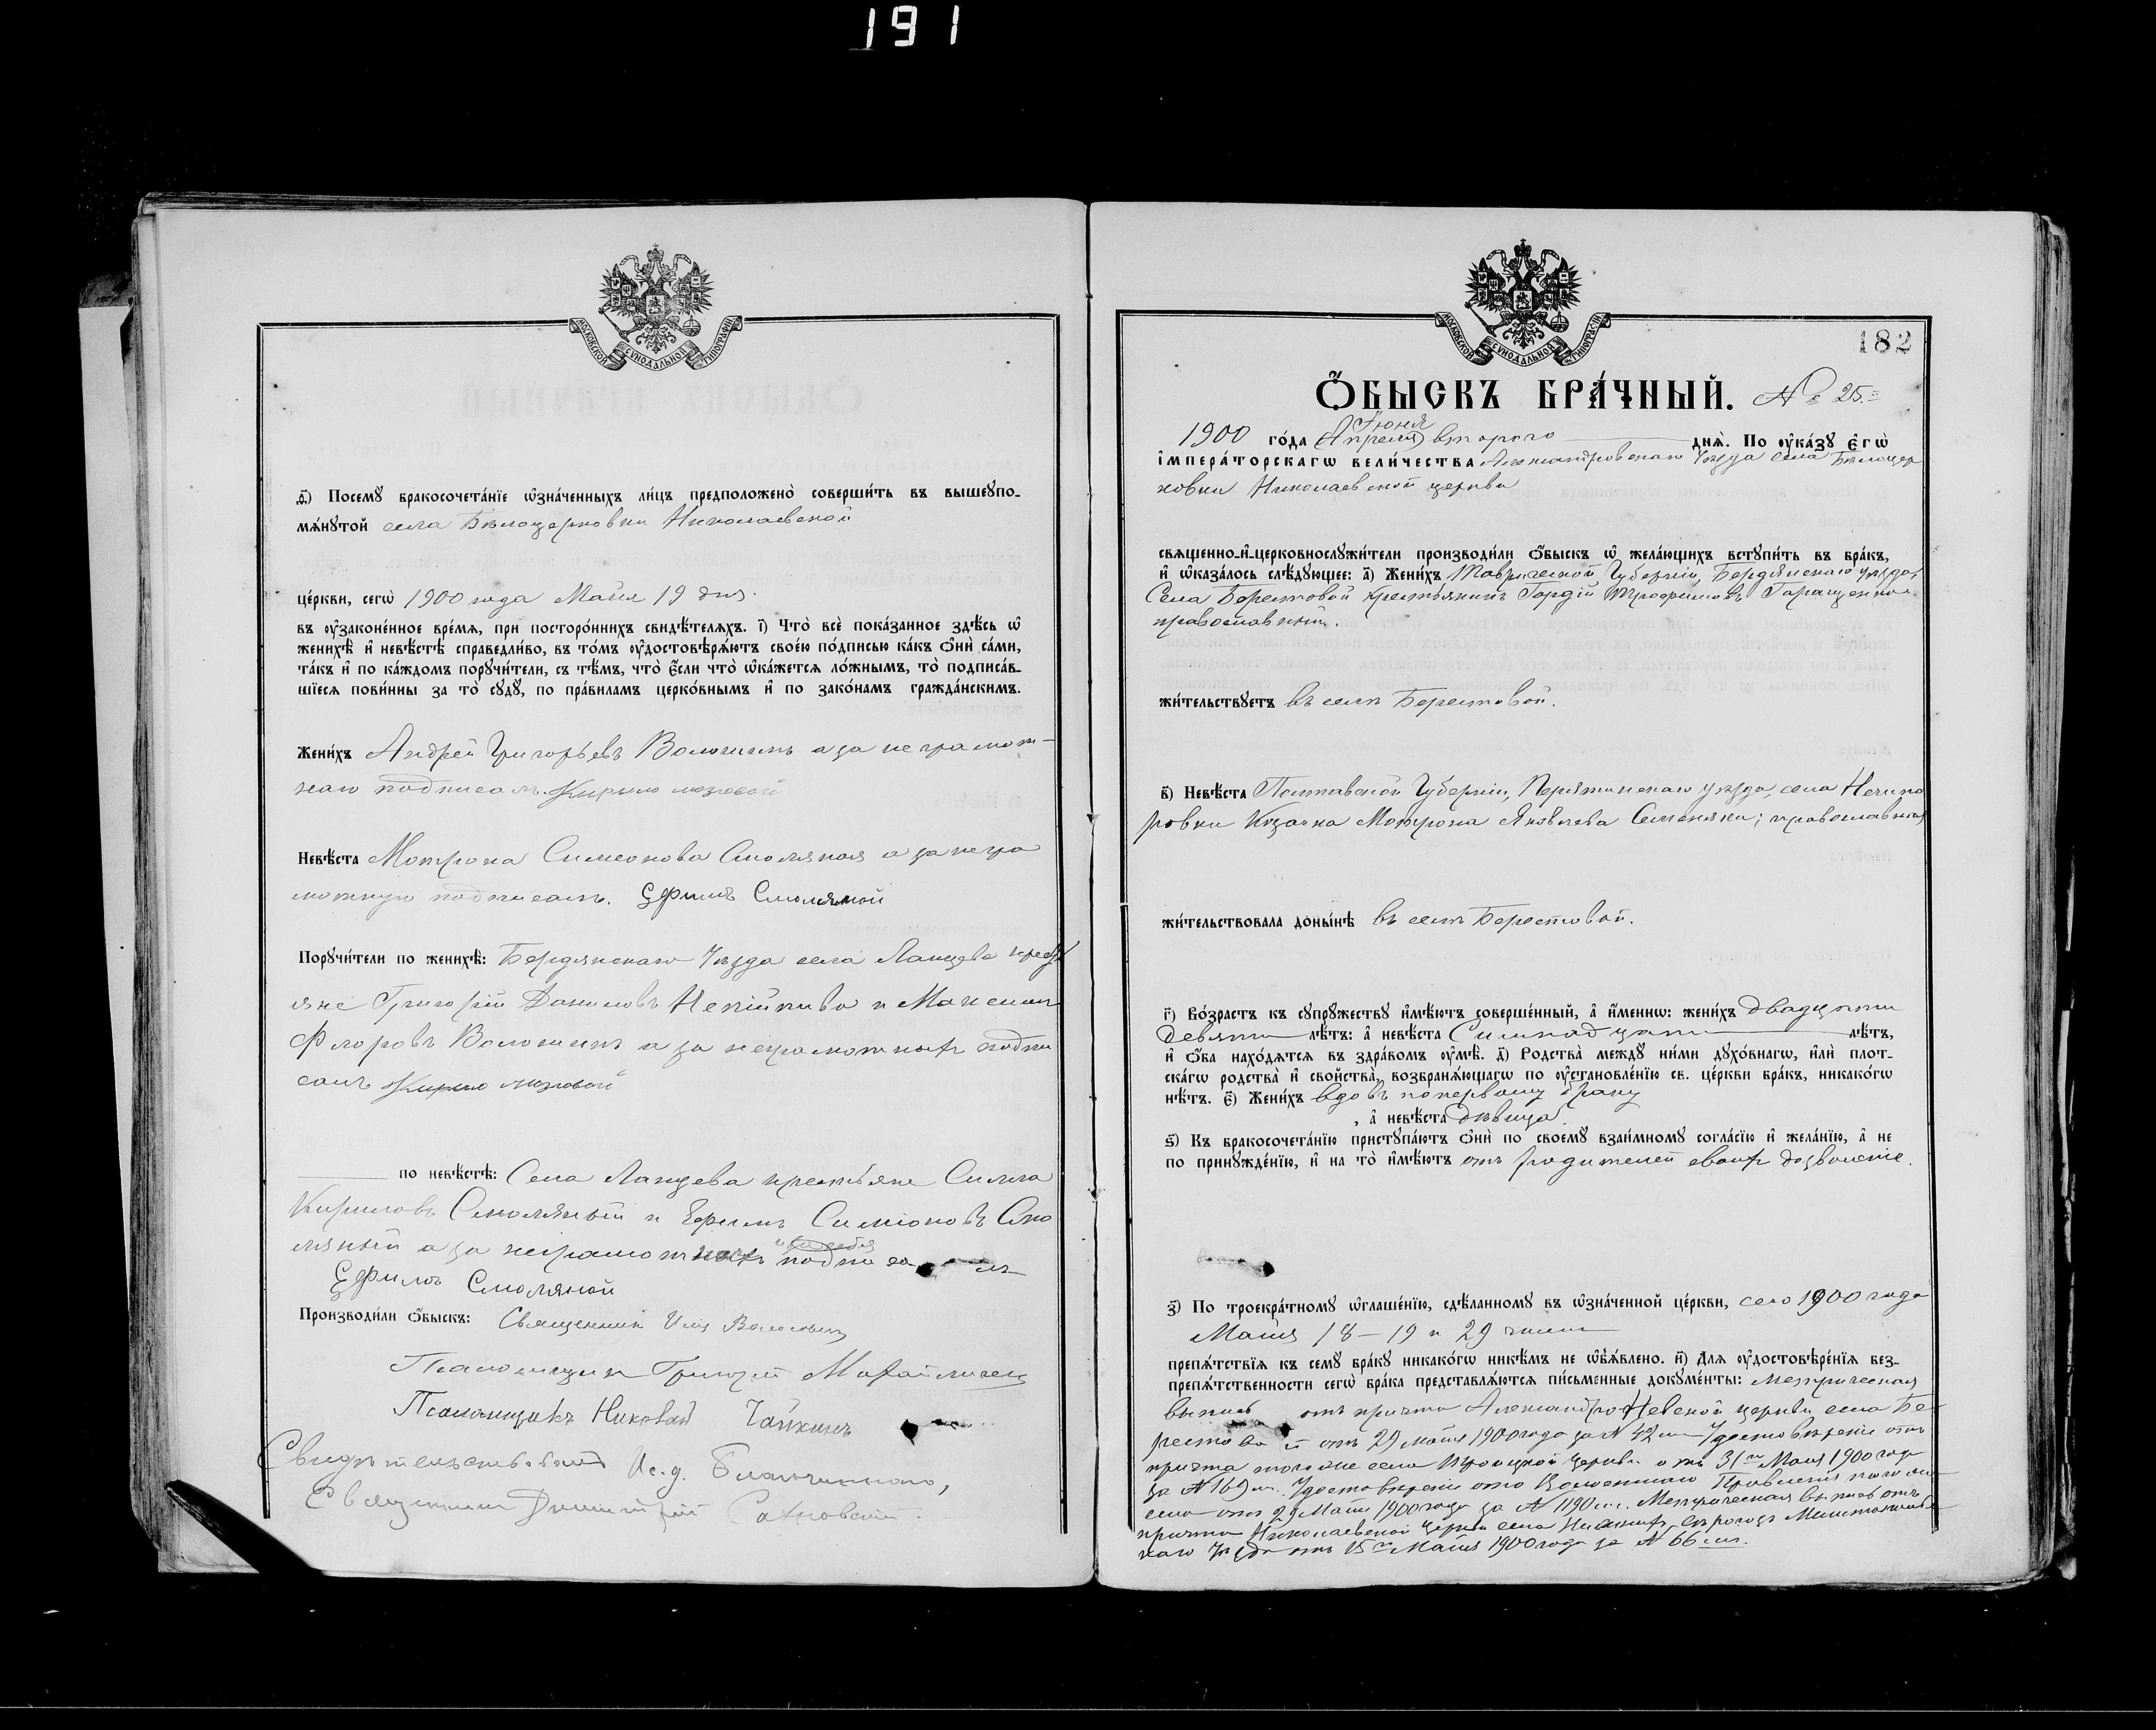 191
МОСКОВСКОЙ СѴНОДАЛЬНОЙ ТИПОГРАФІИ
ѳ҃) Посемꙋ̀ бракосочета́нїе ѡ҆зна́ченныхъ ли́цъ предположено̀ соверши́ть въ вышеꙋпо-
мѧ́нꙋтой села Бѣлоцерковки Николаевской
це́ркви, сегѡ̀ 1900 года Майя 19 дня.
въ ᲂу҆зако́ненное вре́мѧ, при посторо́ннихъ свидѣ́телѧхъ. і҃) Что̀ всѐ пока́занное здѣ́сь ѡ҆
женихѣ̀ и҆ невѣ́стѣ справедли́во, въ то́мъ ᲂу҆достовѣрѧ́ютъ свое́ю по́дписью ка́къ ѻ҆нѝ са́ми,
та́къ и҆ по ка́ждомъ порꙋчи́тели, съ тѣ́мъ, что̀ є҆́сли что̀ ѡ҆ка́жетсѧ ло́жнымъ, то̀ подписа́в-
шїесѧ пови́нны за то̀ сꙋдꙋ̀, по пра́виламъ церко́внымъ и҆ по зако́намъ гражда́нскимъ.
Жени́хъ Андрей Григорьевъ Волошинъ а за неграмот-
наго подписалъ Кирило
Невѣ́ста Мотрона Симеонова Смоляная а за негра
мотную подписалъ. Ефимъ Смоляной
Порꙋчи́тели по женихѣ̀: Бердянскаго Уѣзда села Ланцева крестья
яне Григорій Даниловъ и Максимъ
Флоровъ Волошинъ а за неграмотныхъ подпи
салъ Кирило
по невѣ́стѣ: Села Ланцева крестьяне Силла
Кириловъ Смоляный и Ефимъ Симіоновъ Смо
ляный а за неграмотныхъ и за себя подписалъ
Ефимъ Смоляной
Производи́ли ѻ҆́быскъ: Священникъ
Псаломщикъ Григорій
Псаломщикъ Николай Чайкинъ
Свидѣтельствовалъ И.д. Благочиннаго,
Священникъ Димитрій
МОСКОВСКОЙ СѴНОДАЛЬНОЙ ТИПОГРАФІИ
182
Ѻ҆́БЫСКЪ БРА́ЧНЫЙ. № 25.
Іюня
1900 го́да (Апреля) второго днѧ̀. По ᲂу҆ка́зꙋ є҆гѡ̀
і҆мпера́торскагѡ вели́чества Александровскаго Уѣзда села Бѣлоцер
ковки Николаевской церкви
свѧщенно-и҆-церковнослꙋжи́тели производи́ли ѻ҆́быскъ ѡ҆ жела́ющихъ встꙋпи́ть въ бра́къ,
и҆ ѡ҆каза́лось слѣ́дꙋющее: а҃) Жени́хъ Таврической Губерніи, Бердянскаго уѣзда,
Села Берестовой крестьянинъ Гордій Трофимовъ Геращенко
православный.
жи́тельствꙋетъ въ селѣ Берестовой.
в҃) Невѣ́ста Полтавской Губерніи, Пирятинскаго уѣзда, села Нечипо
ровки Козачка Мотрона Яковлева Семеняки; православная
жи́тельствовала доны́нѣ въ селѣ Берестовой.
г҃) Во́зрастъ къ сꙋпрꙋ́жествꙋ и҆мѣ́ютъ соверше́нный, а҆ и҆́меннѡ: жени́хъ двадцати
девяти лѣ́тъ: а҆ невѣ́ста Симнадцати лѣ́тъ,
и҆ ѻ҆́ба нахо́дѧтсѧ въ здра́вомъ ᲂу҆мѣ̀. д҃) Родства̀ междꙋ̀ ни́ми дꙋхо́внагѡ, и҆лѝ плот-
ска́гѡ родства̀ и҆ сво́йства̀, возбранѧ́ющагѡ по ᲂу҆становле́нїю св. це́ркви бра́къ, никако́гѡ
нѣ́тъ. є҃) Жени́хъ вдовъ по первому браку
, а҆ невѣ́ста дѣвица.
ѕ҃) Къ бракосочета́нїю пристꙋпа́ютъ ѻ҆нѝ по своемꙋ̀ взаи́мномꙋ согла́сїю и҆ жела́нїю, а҆ не
по принꙋжде́нїю, и҆ на то̀ и҆мѣ́ютъ отъ родителей своихъ дозволеніе.
з҃) По троекра́тномꙋ ѡ҆глаше́нїю, сдѣ́ланномꙋ въ ѡ҆зна́ченной це́ркви, сего 1900 года
Майя 18 — 19 и 29 числа
препѧ́тствїѧ къ семꙋ̀ бра́кꙋ никако́гѡ никѣ́мъ не ѡ҆б̾ѧ́влено. и҃) Длѧ ᲂу҆достовѣре́нїѧ без-
препѧ́тственности сегѡ̀ бра́ка представлѧ́ютсѧ пи́сьменные докꙋме́нты: Метрическая
выпись отъ причта Александро-Невской церкви села Бе-
рестовой отъ 29 майя 1900 года за № 42 Удостовѣреніе отъ
причта того же села Троицкой церкви отъ 31го Майя 1900 года
за № 169 Удостовѣреніе отъ Волостнаго Правленія того же
села отъ 29 Майя 1900 года за № 1190. Метрическая выпись отъ
причта Николаевской церкви села
Уѣзда отъ 15го Майя 1900 года за № 66